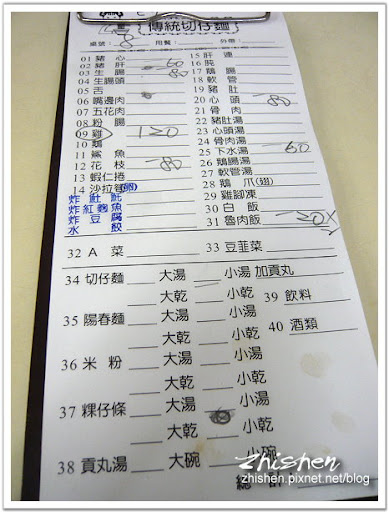 傳統切仔麵
桌號: 8 用餐/ 外帶
01 豬心 15 肝連
02 豬肝 60 16 肫
03 生腸 80 17 鵝腸
04 生腸頭 18 軟管
05 舌 19 豬肚
06 嘴邊肉 20 心頭 80
07 五花肉 21 骨肉
08 粉腸 22 豬肚湯
09 雞 120 23 心頭湯
10 鵝 24 骨肉湯
11 鯊魚 25 下水湯 60
12 花枝 80 26 鵝腸湯
13 蝦仁捲 27 軟管湯
14 沙拉筍 28 鵝爪(翅)
炸肚肫 29 雞腳凍
炸紅麴魚 30 白飯
炸豆腐 31 魯肉飯 20x
水餃
32 A菜 33 豆韮菜
34 切仔麵 大湯 小湯 加貢丸
大乾 小乾 39 飲料
35 陽春麵 大湯 小湯
大乾 小乾 40 酒類
36 米粉 大湯 小湯
大乾 小乾
37 粿仔條 大湯 小湯
大乾 小乾
38 貢丸湯 大碗 小碗
總計
zhishen
zhishen.pixnet.net/blog